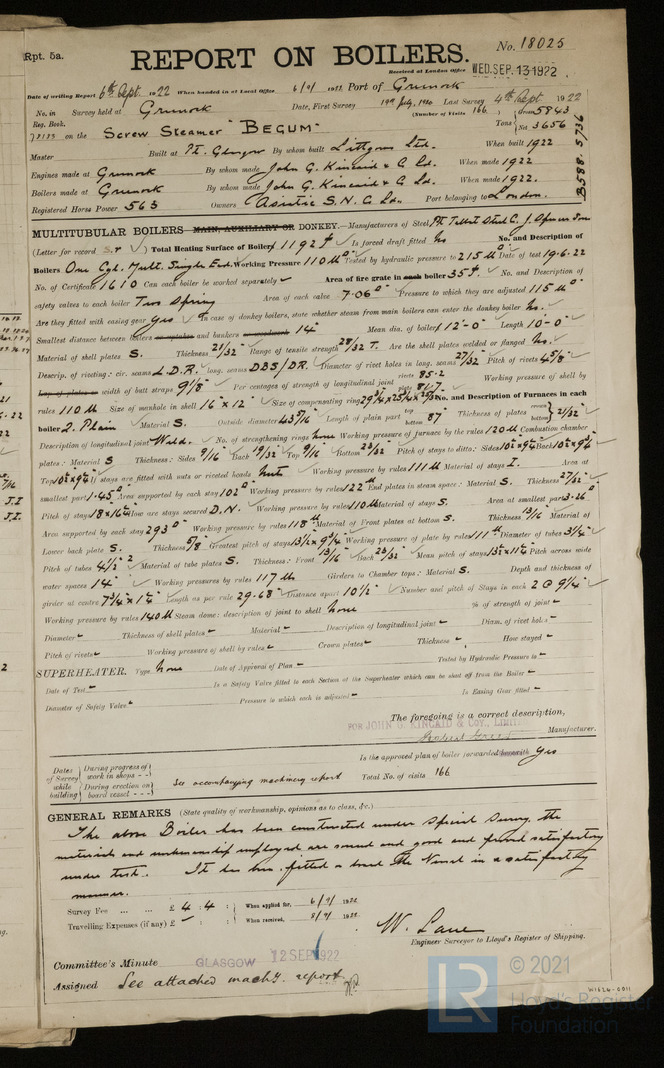 Rpt. 5a.
REPORT ON BOILERS.
No. 18025
Received at London Office WED. SEP. 13 1922
Date of writing Report 6th Sept 1922 When handed in at Local Office 6/9/1922 Port of Greenock
No. in Reg. Book. Survey held at Greenock Date, First Survey Last Survey 4th Sept 1922
(Number of Visits 166)
on the Screw Steamer "BEGUM" Tons Gross 5843 Net 3656
Master Built at Pt. Glasgow By whom built Lithgows Ltd. When built 1922
Engines made at Greenock By whom made John G. Kincaid & Co Ld. When made 1922
Boilers made at Greenock By whom made John G. Kincaid & Co Ld. When made 1922.
Registered Horse Power 563 Owners Asiatic S.N. Co Ld. Port belonging to London.
MULTITUBULAR BOILERS MAIN, AUXILIARY OR DONKEY.—Manufacturers of Steel Pt Talbot Steel Co. J. Spencer
(Letter for record S.r) Total Heating Surface of Boilers 1192 Is forced draft fitted No No. and Description of
Boilers One Cyl. Mult. Single End. Working Pressure 110 Tested by hydraulic pressure to 215 Date of test 19.6.22
No. of Certificate 1610 Can each boiler be worked separately Area of fire grate in each boiler 35 No. and Description of
safety valves to each boiler Two Spring Area of each valve 7.06 Pressure to which they are adjusted 115
Are they fitted with easing gear Yes In case of donkey boilers, state whether steam from main boilers can enter the donkey boiler No.
Smallest distance between boilers or uptakes and bunkers or woodwork 14" Mean dia. of boilers 12'-0" Length 10'-0"
Material of shell plates S. Thickness 21/32 Range of tensile strength 28/32 T. Are the shell plates welded or flanged No.
Descrip. of riveting: cir. seams L.D.R. long. seams DBS/DR. Diameter of rivet holes in long. seams 27/32 Pitch of rivets 4 5/8
Lap of plates or width of butt straps 9 1/8 Per centages of strength of longitudinal joint rivets 85.2 plate 81.7 Working pressure of shell by
rules 110 Size of manhole in shell 16" x 12" Size of compensating ring No. and Description of Furnaces in each
boiler 2. Plain Material S Outside diameter 43 5/16 Length of plain part top bottom 87" Thickness of plates crown bottom 21/32
Description of longitudinal joint Weld. No. of strengthening rings none Working pressure of furnace by the rules 120 Combustion chamber
plates: Material S Thickness: Sides 9/16 Back 19/32 Top 9/16 Bottom 23/32 Pitch of stays to ditto: Sides 10 1/2 x 9 1/4 Back 10 1/2 x 9 1/4
Top 10 1/2 x 9 1/4 If stays are fitted with nuts or riveted heads Nuts Working pressure by rules 111 Material of stays I. Area at
smallest part 1.45 Area supported by each stay 102 Working pressure by rules 122 End plates in steam space: Material S. Thickness 27/32
Pitch of stays How are stays secured D.N. Working pressure by rules 110 Material of stays S. Area at smallest part 3.26
Area supported by each stay 293 Working pressure by rules 118 Material of Front plates at bottom S. Thickness 13/16 Material of
Lower back plate S. Thickness 5/8 Greatest pitch of stays 13 1/2 x 9 3/4 Working pressure of plate by rules 111 Diameter of tubes 3 1/4
Pitch of tubes 4 1/2 Material of tube plates S. Thickness: Front 13/16 Back 23/32 Mean pitch of stays Pitch across wide
water spaces 14" Working pressures by rules 117 lbs Girders to Chamber tops: Material S. Depth and thickness of
girder at centre 7 3/4 x 1 1/4 Length as per rule 29.68 Distance apart 10 1/2 Number and pitch of Stays in each 2 @ 9 1/4
Working pressure by rules 140 Steam dome: description of joint to shell None % of strength of joint
Diameter Thickness of shell plates Material Description of longitudinal joint Diam. of rivet holes
Pitch of rivets Working pressure of shell by rules Crown plates Thickness How stayed
SUPERHEATER. Type None Date of Approval of Plan Tested by Hydraulic Pressure to
Date of Test Is a Safety Valve fitted to each Section of the Superheater which can be shut off from the Boiler
Diameter of Safety Valve Pressure to which each is adjusted Is Easing Gear fitted
The foregoing is a correct description,
FOR JOHN G. KINCAID & COY., LIMIT
Manufacturer.
Dates of Survey while building
During progress of work in shops - -
During erection on board vessel - - -
See accompanying machinery report
Is the approved plan of boiler forwarded herewith Yes
Total No. of visits 166
GENERAL REMARKS (State quality of workmanship, opinions as to class, &c.)
The above Boiler has been constructed under Special Survey, the
materials and workmanship employed are sound and good and proved satisfactory
under test. It has been fitted on board the Vessel in a satisfactory
manner.
Survey Fee ... ... £ 4 : 4 : When applied for, 6/9/1922
Travelling Expenses (if any) £ When received, 8/9/1922
W. Lane
Engineer Surveyor to Lloyd's Register of Shipping.
Committee's Minute GLASGOW 12 SEP 1922
Assigned See attached machy. report
W1626-0011
LR
© 2021
Lloyd's Register
Foundation